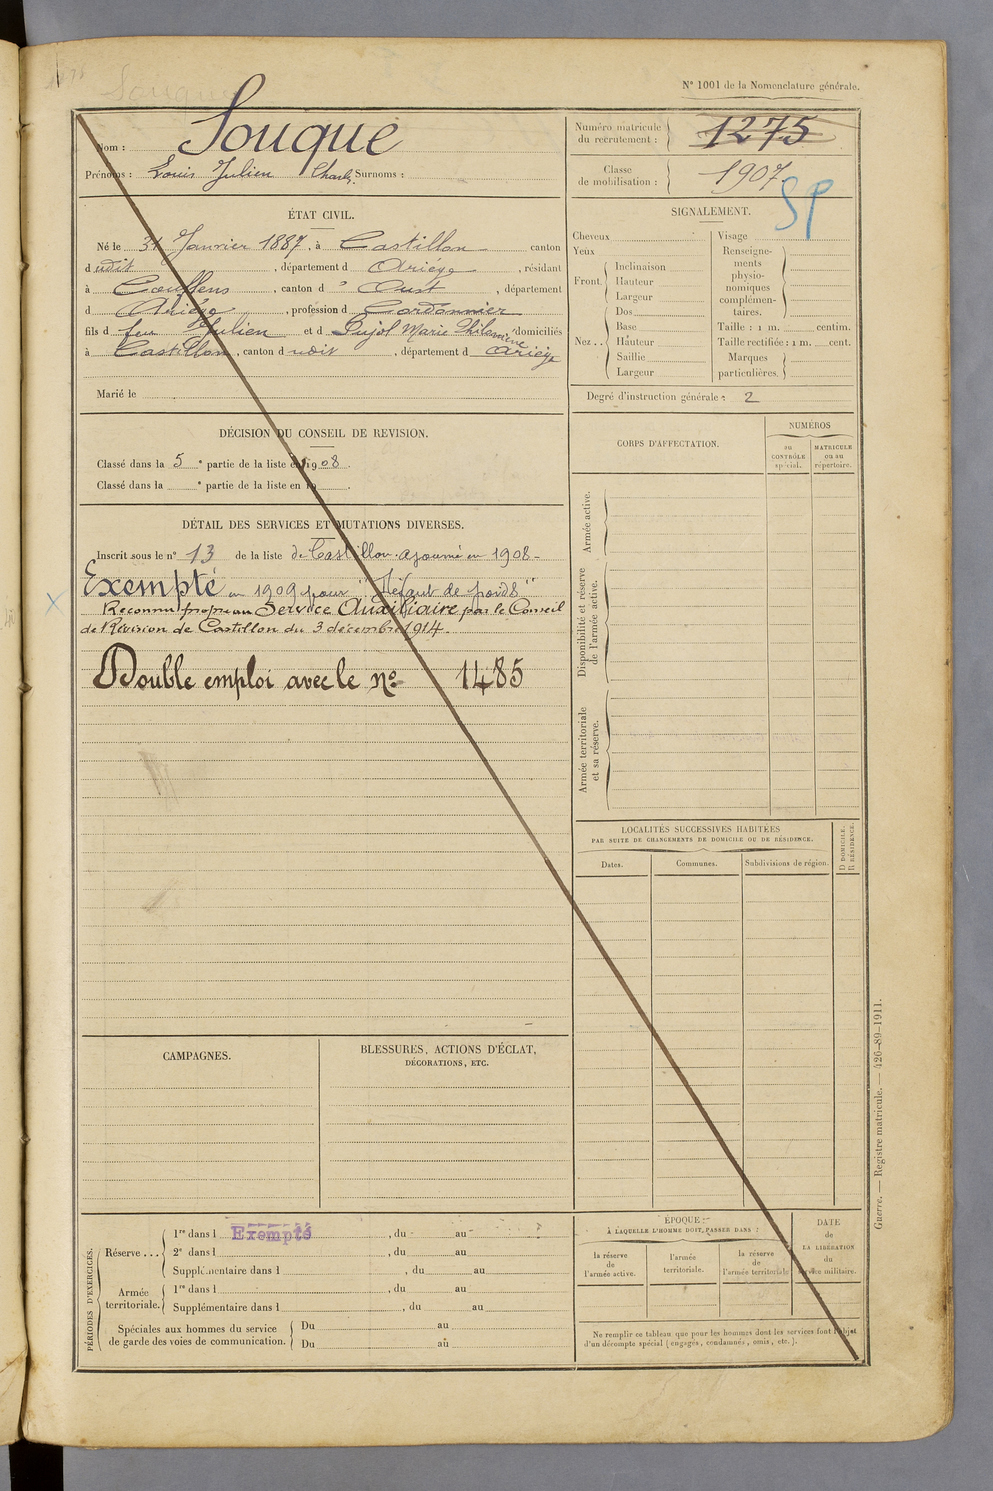 N° 1001 de la Nomenclature générale.
Nom : Souque
Prénoms : Louis Julien Charls Surnoms :
Numéro matricule du recrutement : 1275
Classe de mobilisation : 1907
SP
ÉTAT CIVIL.
Né le 31 Janvier 1887, à Castillon canton
d udit, département d Ariège, résidant
à Couflens, canton d' Oust, département
d Ariège, profession d Cordonnier
fils d feu Julien et d Pujol Marie Philomène domiciliés
à Castillon, canton d udit, département d Ariège
Marié le
SIGNALEMENT.
Cheveux
Yeux
Front. Inclinaison
Hauteur
Largeur
Nez .. Dos
Base
Hauteur
Saillie
Largeur
Visage
Renseigne-
ments
physio-
nomiques
complémen-
taires.
Taille : 1 m. centim.
Taille rectifiée : 1 m. cent.
Marques
particulières.
Degré d'instruction générale : 2
DÉCISION DU CONSEIL DE REVISION.
Classé dans la 5e partie de la liste en 1908.
Classé dans la e partie de la liste en 1
CORPS D'AFFECTATION.
NUMÉROS
au CONTRÔLE spécial.
MATRICULE ou au répertoire.
Armée active.
Disponibilité et réserve de l'armée active.
Armée territoriale et sa réserve.
DÉTAIL DES SERVICES ET MUTATIONS DIVERSES.
Inscrit sous le n° 13 de la liste de Castillon. ajourné en 1908 -
Exempté en 1909 pour "Défaut de poids"
Reconnu propre au Service Auxiliaire par le Conseil
de Révision de Castillon du 3 décembre 1914.
Double emploi avec le no 1485
LOCALITÉS SUCCESSIVES HABITÉES
PAR SUITE DE CHANGEMENTS DE DOMICILE OU DE RÉSIDENCE.
Dates.
Communes.
Subdivisions de région.
D DOMICILE. R RÉSIDENCE.
CAMPAGNES.
BLESSURES, ACTIONS D'ÉCLAT,
DÉCORATIONS, ETC.
PÉRIODES D'EXERCICES.
Réserve ... 1re dans l Exempté, du au
2e dans l , du au
Supplémentaire dans l , du au
Armée territoriale. 1re dans l , du au
Supplémentaire dans l , du au
Spéciales aux hommes du service
de garde des voies de communication.
Du au
Du au
ÉPOQUE
À LAQUELLE L'HOMME DOIT PASSER DANS :
la réserve de l'armée active.
l'armée territoriale.
la réserve de l'armée territoriale
DATE de LA LIBÉRATION du service militaire.
Ne remplir ce tableau que pour les hommes dont les services font l'objet
d'un décompte spécial (engagés, condamnés, omis, etc.).
Guerre. — Registre matricule. — 426-89-1911.